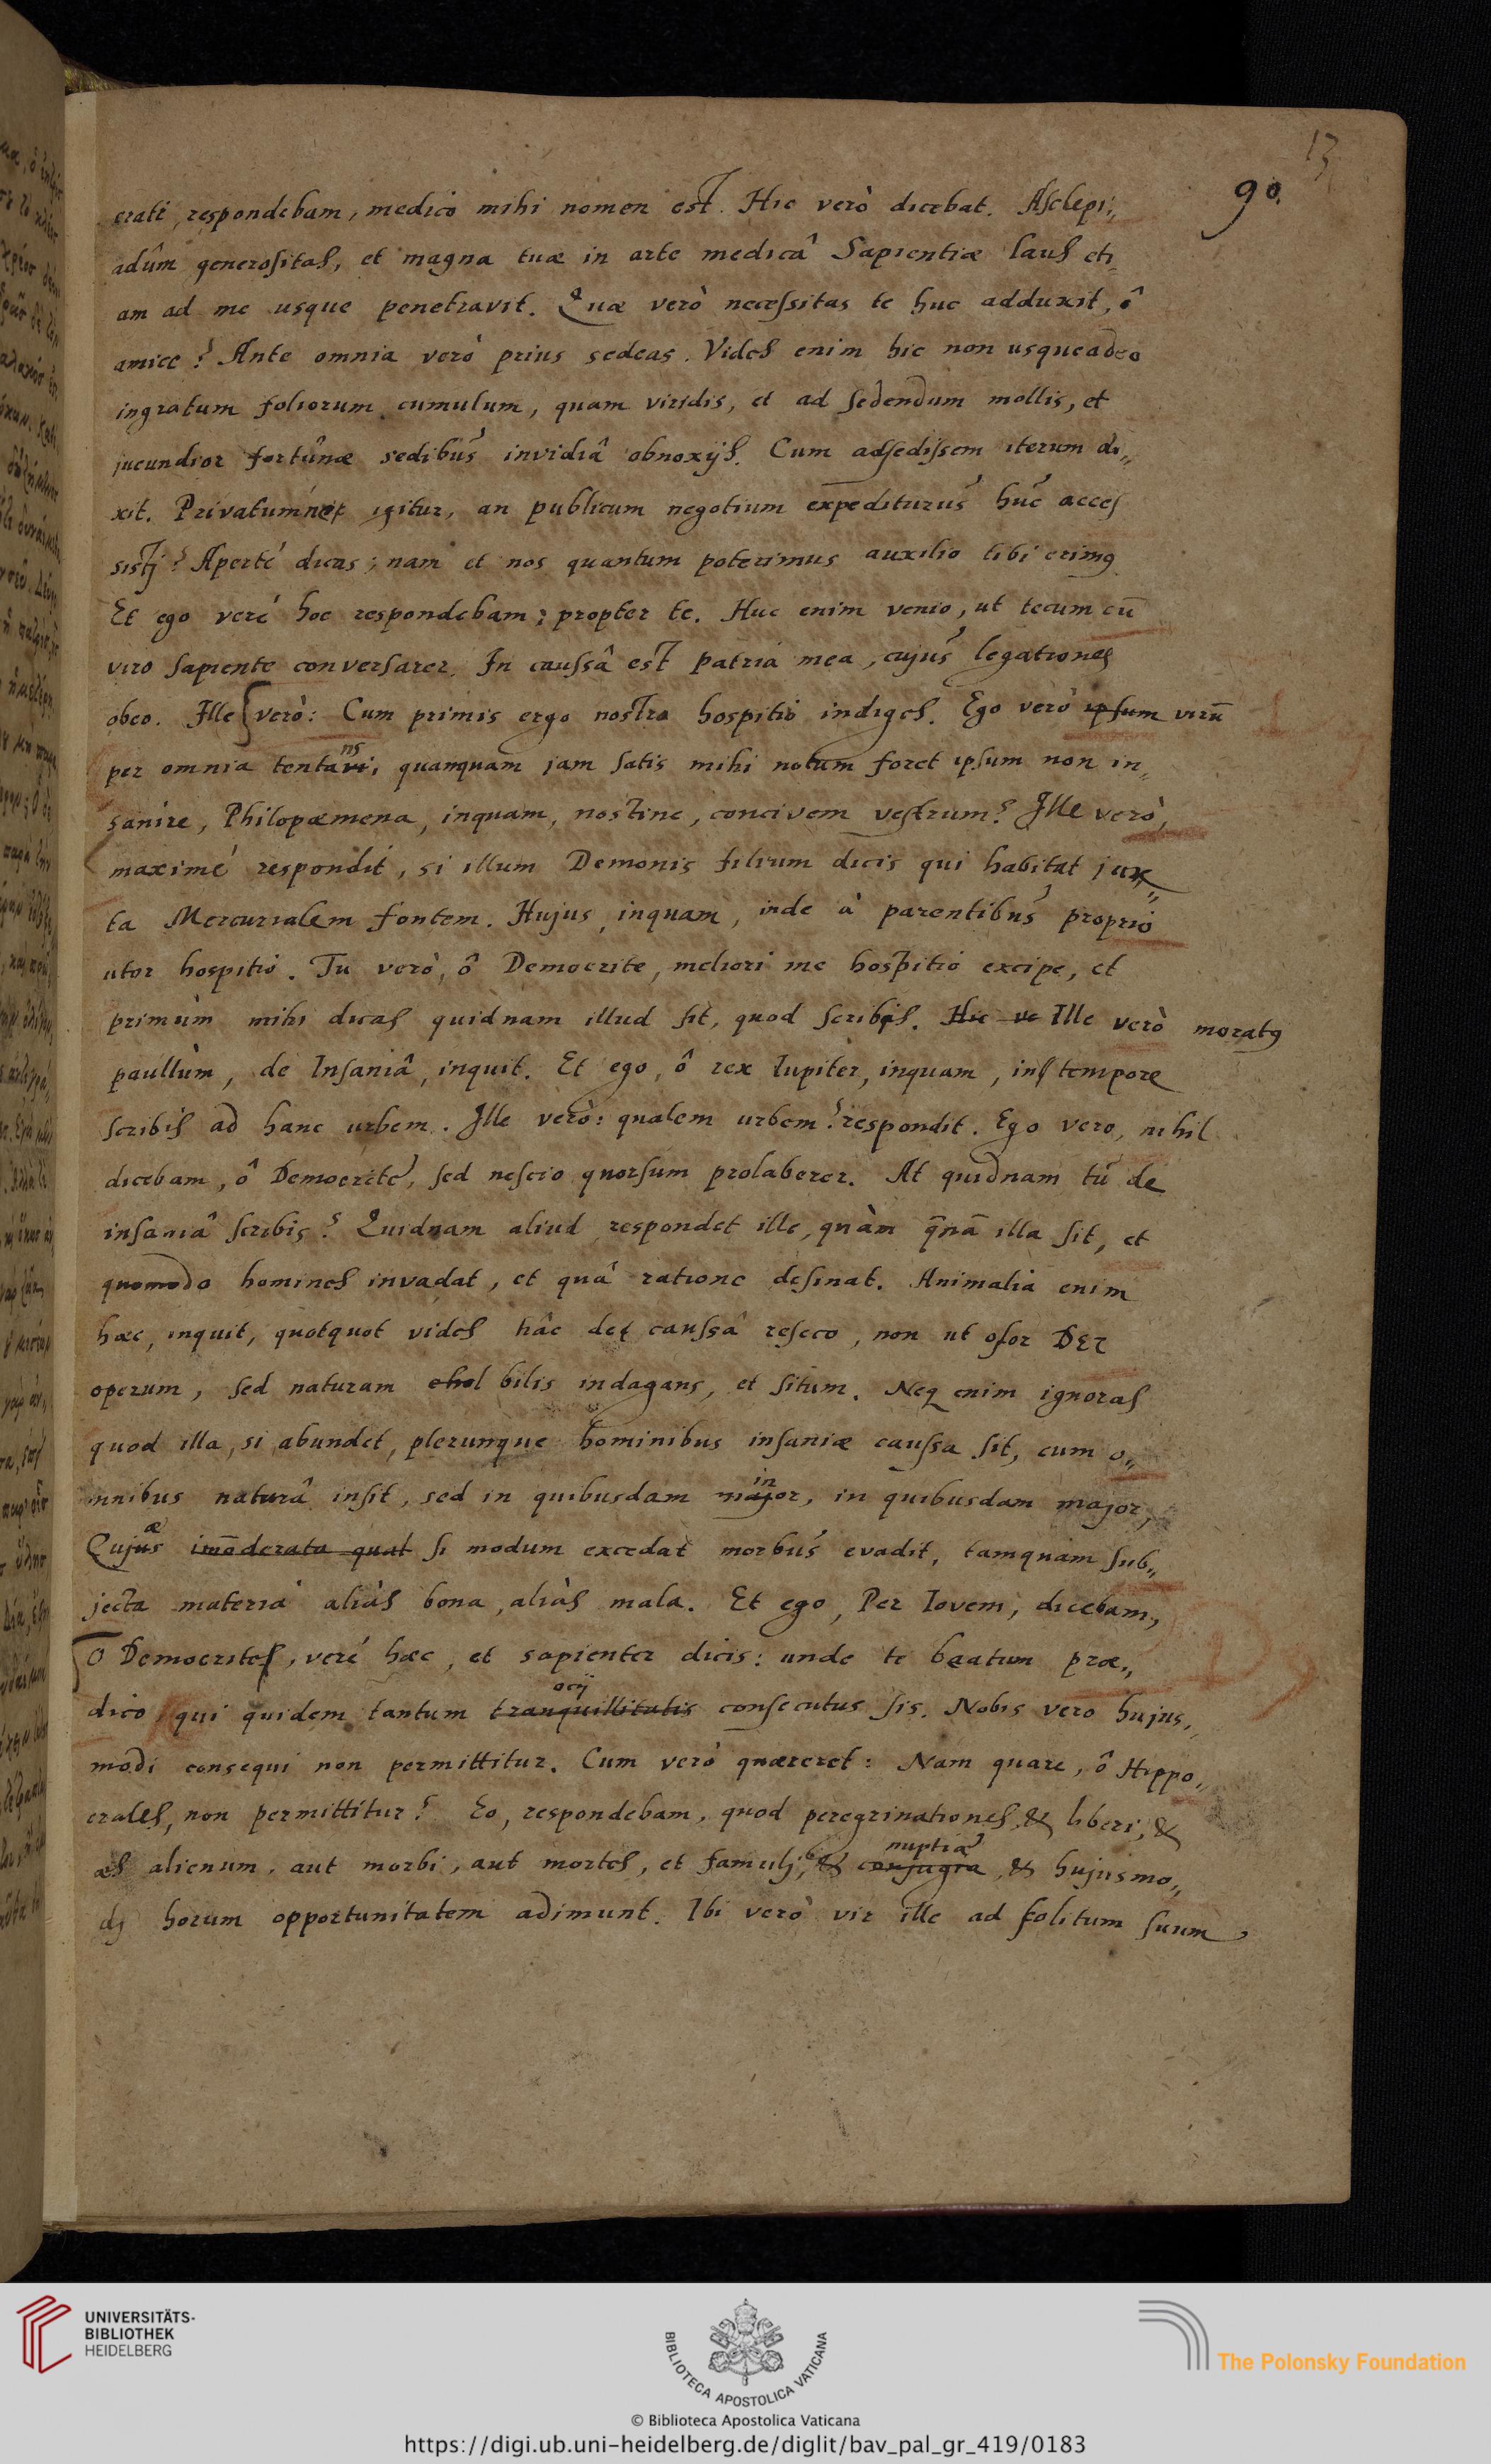 13
90.
crati, respondebam, medico mihi nomen est. Hic verò dicebat. Asclepi„
adûm generositas, et magna tuæ in arte medicâ Sapientiæ laus eti„
am ad me usque penetravit. Quæ verò necessitas te huc adduxit, ô
amice? Ante omnia verò prius sedeas. Vides enim hic non usqueadeo
ingratum foliorum cumulum, quam viridis, et ad sedendum mollis, et
jucundior fortûnæ sedibus invidiâ obnoxijs. Cum adsedissem iterum di„
xit. Privatumne igitur, an publicum negotium expediturus huc acces
sistj? Aperté dicas; nam et nos quantum poterimus auxilio tibi erimꝰ
Et ego veré hoc respondebam; propter te. Huc enim venio, ut tecum cū
viro sapiente conversarer. In caussâ est patria mea, cujus legationes
obeo. Ille verò: Cum primis ergo nostro hospitio indiges. Ego verò ipsum virū
per omnia tentavi, ns quamquam jam satis mihi notum foret ipsum non in„
sanire, Philopæmena, inquam, nostine, concivem vestrum? Ille verò,
maximé respondit, si illum Demonis filium dicis qui habitat jux„
ta Mercurialem fontem. Hujus, inquam, inde à parentibus proprio
utor hospitio. Tu verò, ô Democrite, meliori me hospitio excipe, et
primùm mihi dicas quidnam illud sit, quod scribis. Hic ve Ille verò moratꝰ
paullùm, de Insaniâ, inquit. Et ego, ô rex Iupiter, inquam, in tempore
scribis ad hanc urbem. Ille verò: qualem urbem? respondit. Ego vero, nihil
dicebam, ô Democrite, sed nescio quorsum prolaberer. At quidnam tu de
insaniâ scribis? Quidnam aliud respondet ille, quàm q̄nā illa sit, et
quomodo homines invadat, et quâ ratione desinat. Animalia enim
hæc, inquit, quotquot vides hâc de caussâ reseco, non ut osor DEI
operum, sed naturam chol bilis indagans, et situm. Neq enim ignoras
quod illa, si abundet, plerunque hominibus insaniæ caussa sit, cum o„
mnibus naturâ insit, sed in quibusdam major, in in quibusdam major,
Qujus æ im̄oderata quat si modum excedat morbus evadit, tamquam sub„
jecta materia aliàs bona, aliàs mala. Et ego, Per Iovem, dicebam,
O Democrites, veré hæc, et sapienter dicis: unde te beatum præ„
dico qui quidem tantum tranquillitatis ocij consecutus sis. Nobis vero hujus„
modi consequi non permittitur. Cum verò quæreret: Nam quare, ô Hippo„
crates, non permittitur? Eo, respondebam, quod peregrinationes, & liberi, &
æs alienum, aut morbi, aut mortes, et famulj, & conjugia nuptiæ, & hujusmo„
dj horum opportunitatem adimunt. Ibi verò vir ille ad solitum suum
UNIVERSITÄTS-
BIBLIOTHEK
HEIDELBERG
BIBLIOTECA APOSTOLICA VATICANA
The Polonsky Foundation
© Biblioteca Apostolica Vaticana
https://digi.ub.uni-heidelberg.de/diglit/bav_pal_gr_419/0183